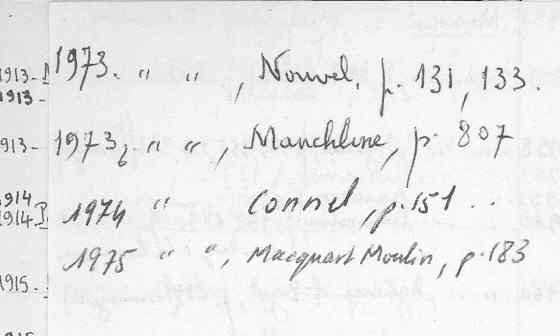 1913-
1973. " " , Nouvel, p. 131, 133.
1913-
1913- 1973, " " , Mauchline, p. 807
1914
1914.
1974 " Connel, p. 151 ..
1975 " " , Macquart Moulin, p. 183
1915-